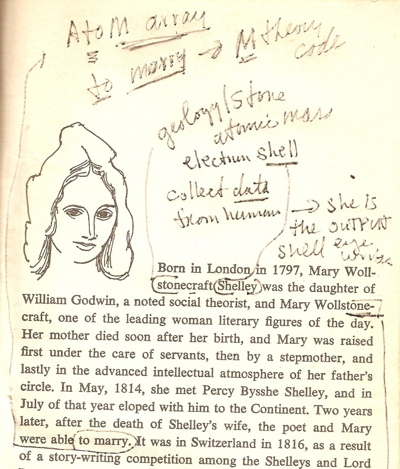 AtoM array
to marry → M theory
code
geology/stone
atomic mass
electron shell
collect data
from human → she is
the OUTPUT
shell eye
Born in London in 1797, Mary Woll-
stonecraft Shelley was the daughter of
William Godwin, a noted social theorist, and Mary Wollstone-
craft, one of the leading woman literary figures of the day.
Her mother died soon after her birth, and Mary was raised
first under the care of servants, then by a stepmother, and
lastly in the advanced intellectual atmosphere of her father's
circle. In May, 1814, she met Percy Bysshe Shelley, and in
July of that year eloped with him to the Continent. Two years
later, after the death of Shelley's wife, the poet and Mary
were able to marry. It was in Switzerland in 1816, as a result
of a story-writing competition among the Shelleys and Lord